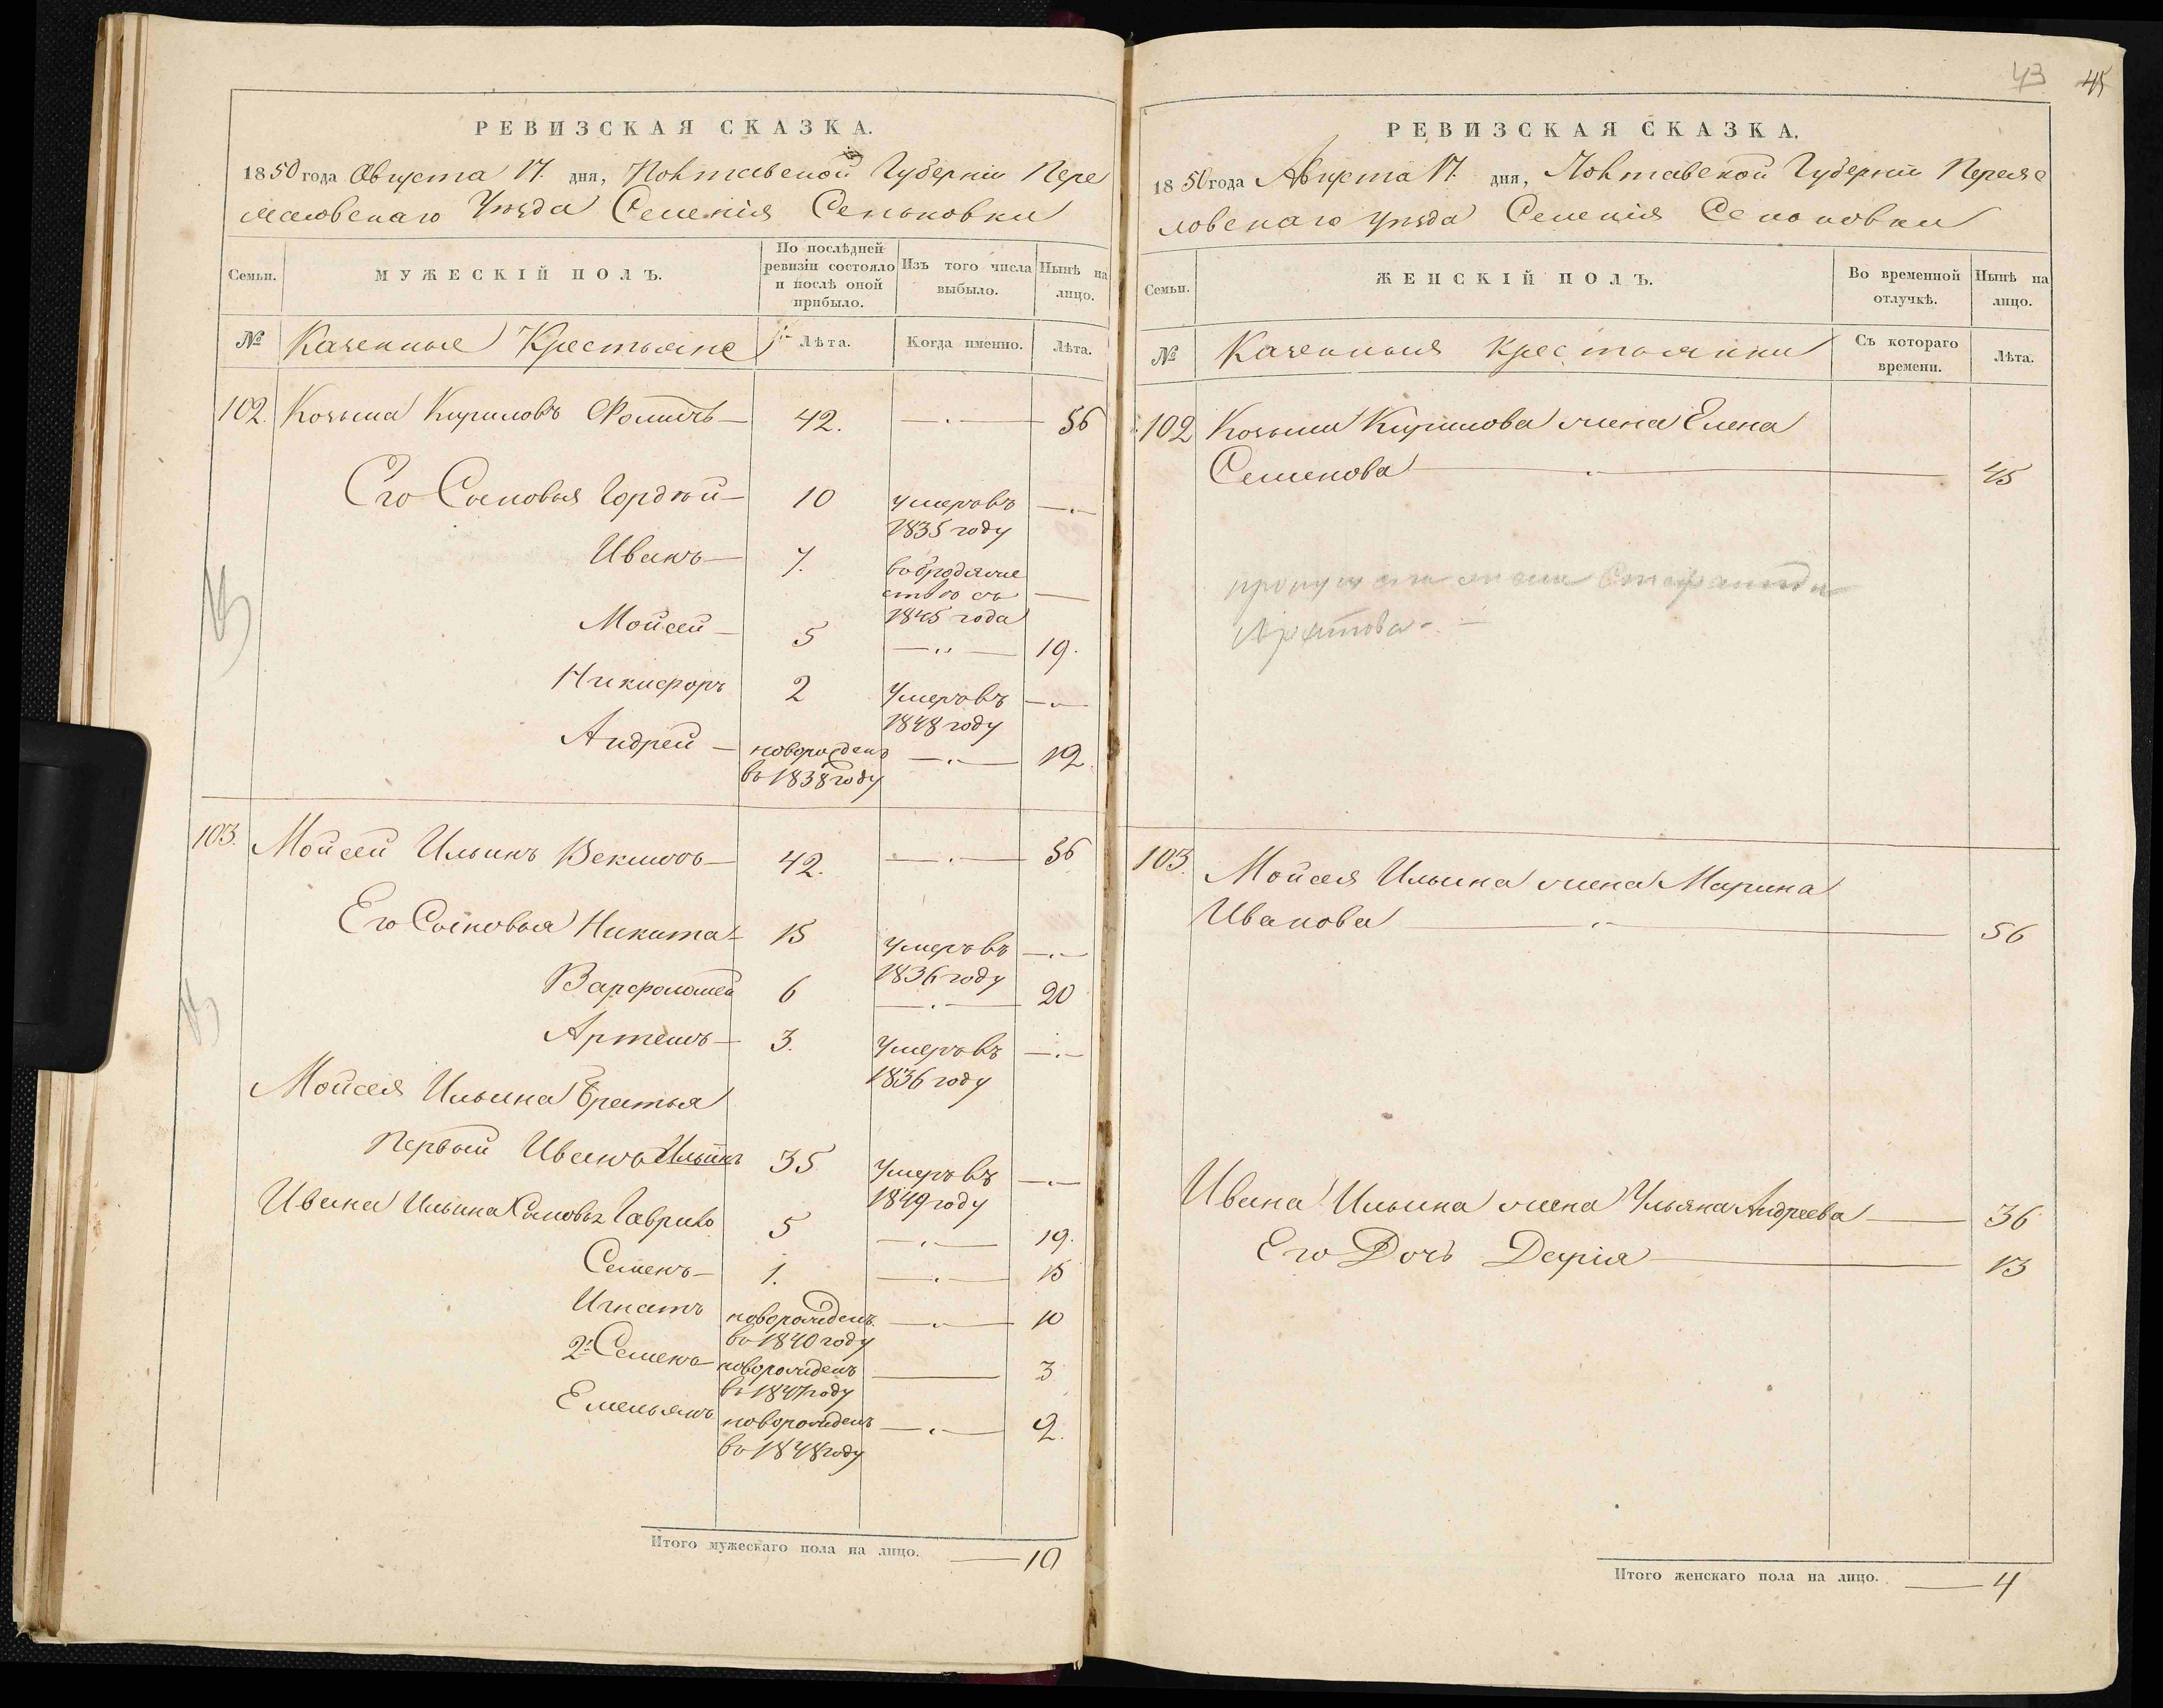 43 45
РЕВИЗСКАЯ СКАЗКА.
1850 года Августа 17. дня, Полтавской Губерніи Пере
яславскаго Уѣзда Селенія Сеньковки
Семьи.
МУЖЕСКІЙ ПОЛЪ.
По послѣдней
ревизіи состояло
и послѣ оной
прибыло.
Изъ того числа
выбыло.
Нынѣ на
лицо.
№ Казенные Крестьяне Лѣта. Когда именно. Лѣта.
102. Козьма Кириловъ 42. 56
Его Сыновья Гордѣй 10 умеръ въ
1835 году
Иванъ 7. въ бродяже
ствѣ съ
1845 года
Мойсей 5 19.
Никифоръ 2 Умеръ въ
1848 году
Андрей новорожденъ 12.
въ 1838 году
103. Мойсей Ильинъ 42. 56
Его Сыновья Никита 15 умеръ въ
1836 году
Варфоломей 6 20
Артемъ 3. Умеръ въ
1836 году
Мойсея Ильина Братья
Первый Иванъ Ильинъ 35 Умеръ въ
1849 году
Ивана Ильина Сыновья Гаврило 5 19.
Семенъ 1. 15
Игнатъ новорожденъ 10
въ 1840 году
2й Семенъ новорожденъ 3
въ 1847 году
Емельянъ новорожденъ 2.
въ 1848 году
Итого мужескаго пола на лицо. 10
РЕВИЗСКАЯ СКАЗКА.
1850 года Августа 17. дня, Полтавской Губерніи Переяс
ловскаго уѣзда Селенія Сеньковки
Семьи.
ЖЕНСКІЙ ПОЛЪ.
Во временной
отлучкѣ.
Нынѣ на
лицо.
№ Казенныя крестьянки
Съ котораго
времени.
Лѣта.
102 Козьмы Кирилова жена Елена
Семенова 45
103. Мойсея Ильина жена Марина
Иванова 56
Ивана Ильина жена Ульяна Андреева 36
Его Дочь Дарія 13
Итого женскаго пола на лицо. 4